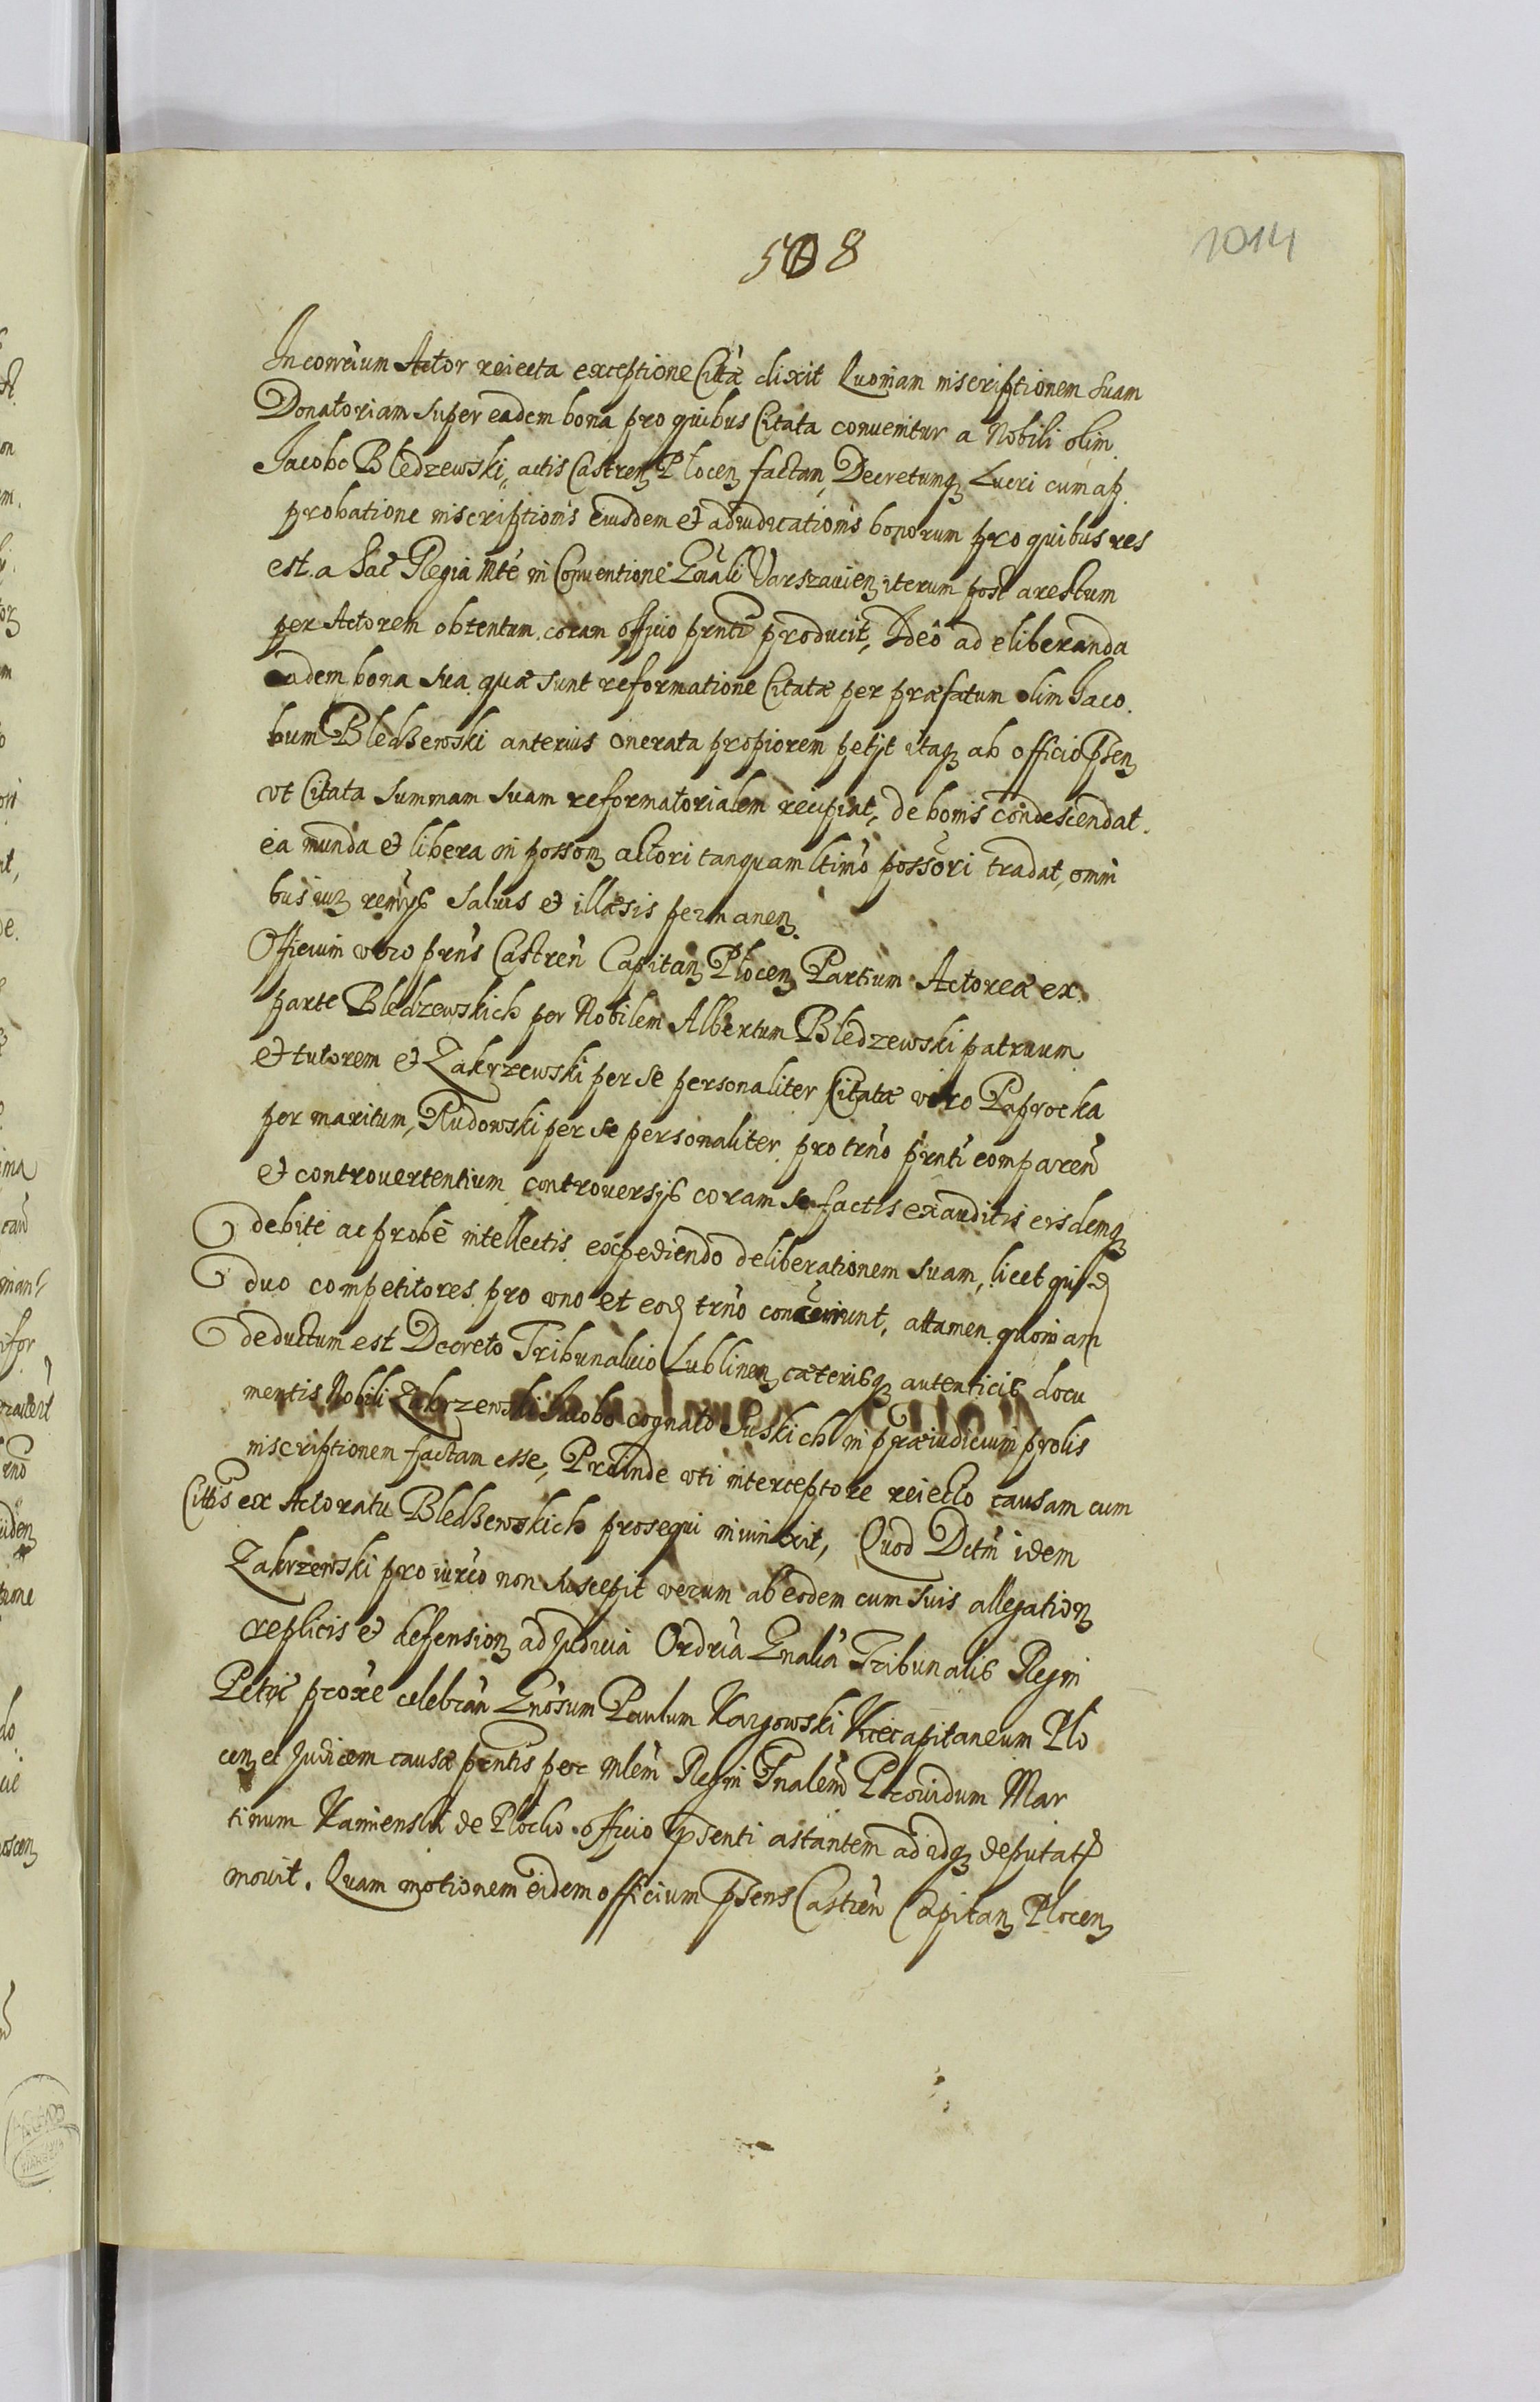 508
1014
Incontrium Actor reiecta exceptione Cittæ dixit Quoniam inscriptionem suam
Donatoriam super eadem bona pro quibus Citata convenitur a Nobili olim
Jacobo Bledzewski, actis Castren Plocen factam, Decretumq Lucri cum ap
probatione inscriptionis eiusdem et adiudicationis bonorum pro quibus res
est. a Sac Regia Mte in Conventione Gnali Varszauien iterum post arestum
per Actorem obtentum coram officio prnti producit, Ideo ad eliberanda
eadem bona sua quæ sunt reformatione Citatæ per præfatum olim Jaco
bum Bledzewski anterius onerata propiorem petijt itaq ab officio psen
vt Citata summam suam reformatorialem recipiat, de bonis condescendat
ea munda et libera in possom actori tanquam ltimo possori tradat, omni
bus iuq remijs saluis et illæsis permanen
Officium vero prns Castren Capitan Plocen Partium Actoreæ ex
parte Bledzewskich per Nobilem Albertum Bledzewski patruum
et tutorem et Zakrzewski per se personaliter Citatæ vero Paprocka
per maritum, Rudowski per se personaliter pro trno prnti comparen
et controuertentium controuersijs coram se factis exauditis eisdemq
debite ac probe intellectis expediendo deliberationem suam, licet quid
duo competitores pro vno et eod trno concurrunt, attamen quoniam
deductum est Decreto Tribunalicio Lublinen cæterisq autenticis docu
mentis Nobili Zakrzewski Jacobo cognato Suskich in præiudicium prolis
inscriptionem factam esse, Proinde vti interceptore reiecto causam cum
Cittis ex Actoratu Bledzewskich prosequi iniunxit, Quod Dctm idem
Zakrzewski pro iureo non suscepit verum ab eodem cum suis allegation
replicis et defension ad Judicia Ordria Gnalia Tribunalis Regni
Petric proxe celebran Gnosum Paulum Kargowski Vicecapitaneum Plo
cen et Judicem causæ prntis per Mlem Regni Gnalem Prouidum Mar
tinum Kamienski de Plocko officio psenti astantem ad idq deputat
mouit. Quam motionem eidem officium psens Castren Capitan Plocen